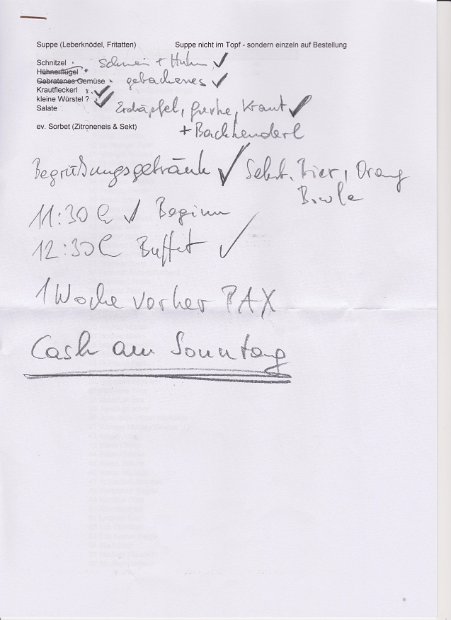 Suppe (Leberknödel, Fritatten) Suppe nicht im Topf - sondern einzeln auf Bestellung
Schnitzel . Schwein + Huhn ✓
Hühnerflügel +
Gebratenes Gemüse . gebackenes ✓
Krautfleckerl x. ✓
kleine Würstel ? ✓
Salate Erdäpfel, Gurke, Kraut ✓
+ Backhenderl
ev. Sorbet (Zitroneneis & Sekt)
Begrüßungsgetränk ✓ Sekt, Bier, Orang
Bowle
11:30h ✓ Beginn
12:30h Buffet ✓
1 Woche vorher PAX
Cash am Sonntag